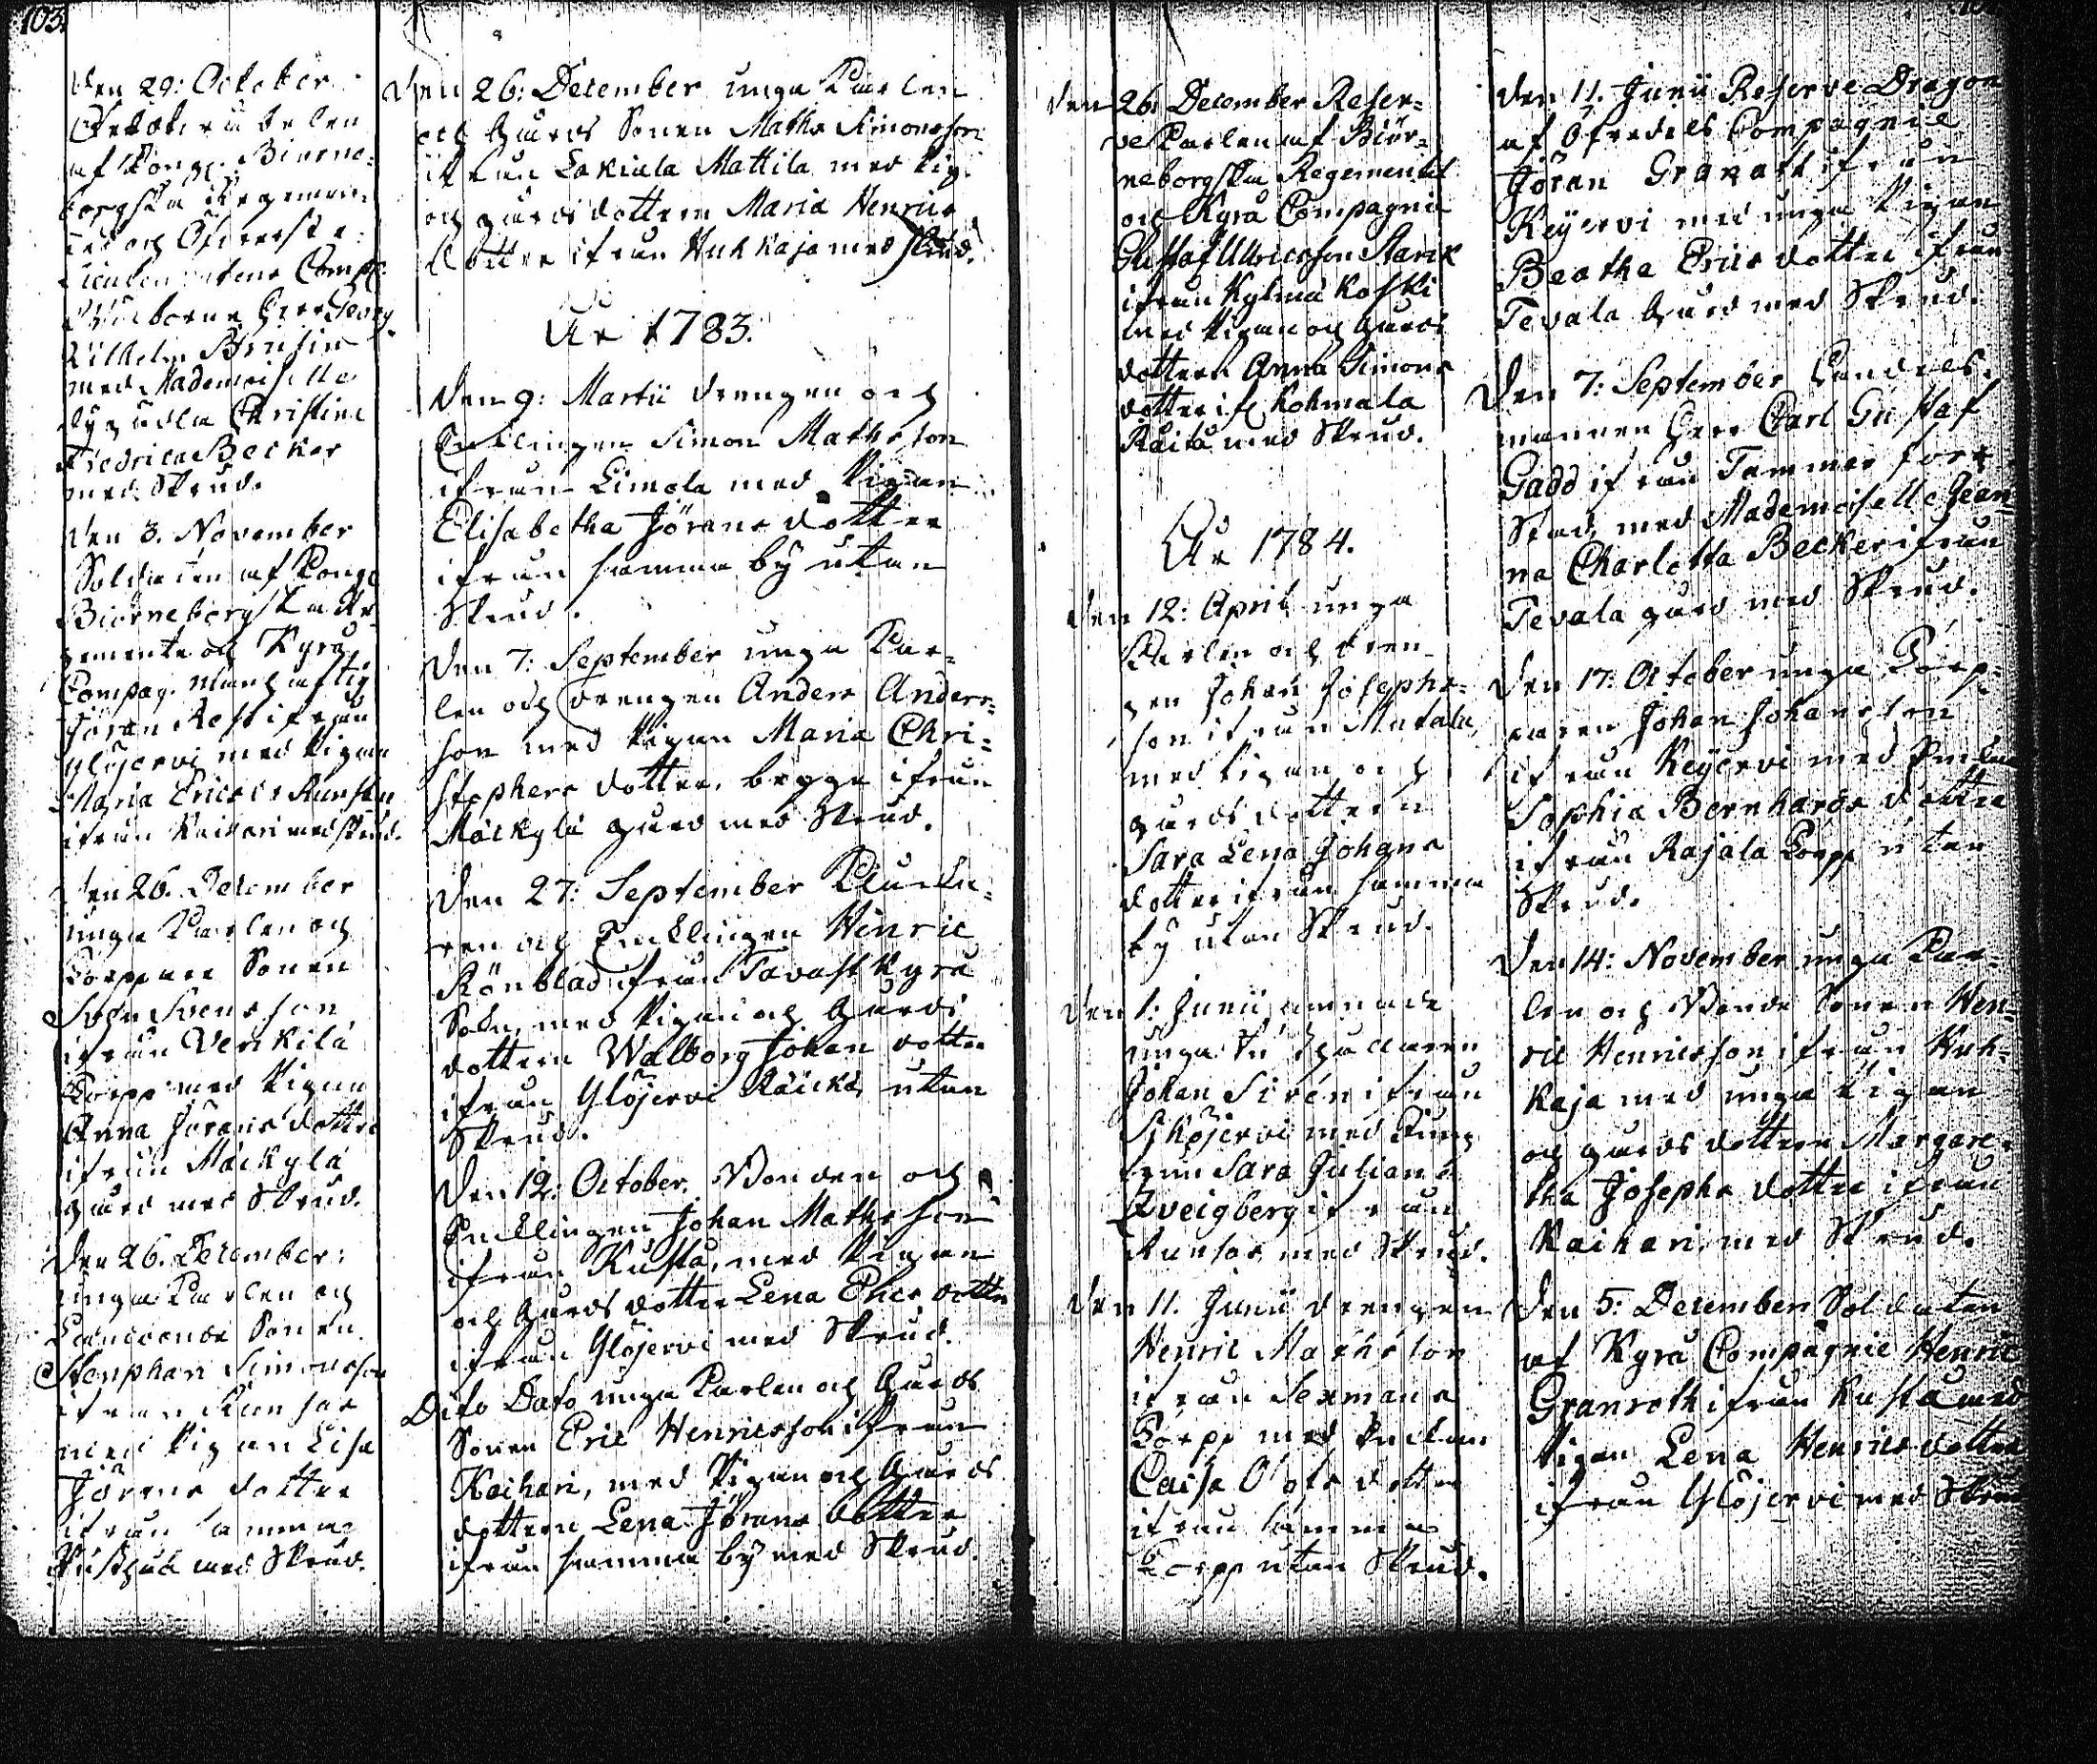 103.
Den 29: October
af Kongl. Biörne-
borgska Regemen-
tets och Öfverste
Lieutenantens Comp:
Wälborne Herr Georg
Wilhelm Brusiin
med Mademoiselle
Dygädla Christina
Fredrica Becker
med Skrud.
Den 3. November
Soldaten af Kongl
Biörneborgska Re-
gemente och Kyro
Compag. Manhaftig
Jöran Rost ifrån
Ylöjervi med Pigan
Maria Ericsdr Runsten
ifrån Kaihari med skrud.
Den 26. December
unga Karlen och
Torppare Sonen
Sven Svensson
ifrån Verkilä
Torpp med Pigan
Anna Jörans dotter
ifrån Mäckylä
gård med Skrud.
Den 26. December:
unga Karlen och
Sonen
Stenphan Simonsson
ifrån Runsor
med Pigan Lisa
Jörans dotter
ifrån samma
med Skrud.
Den 26: December unga Karlen
och Gårds Sonen Maths Simonsson
ifrån Lakiala Mattila med Pig.
och gårds dottren Maria Henrics
dotter ifrån Huhkaja med skrud.
År 1783.
Den 9: Martii Drengen och
Enklingen Simon Mathsson
ifrån Limola med Pigan
Elisabetha Jörans dotter
ifrån samma by utan
Skrud.
Den 7: September unga Kar-
len och Drengen Anders Anders-
son med Pigan Maria Chri-
stophers dotter, begge ifrån
Mäckylä gård med Skrud.
Den 27: September
ren och Enklingen Henric
Rönblad ifrån Tavast Kyro
Sokn, med Pigan och Gårds
dottren Walborg Johan dotter
ifrån Ylöjervi Räickä utan
Skrud.
Den 12: October. Bonden och
Enklingen Johan Mathsson
ifrån Kusta, med Pigan
och Gårds dotter Lena Ehrs dotter
ifrån Ylöjervi med Skrud.
Dito Dato unga Karlen och Gårds
Sonen Eric Henricsson ifrån
Kaihari, med Pigan och Gårds
dottren Lena Jörans dotter
ifrån samma by med Skrud.
Den 26. December Reser-
ve Karlen af Biör-
neborgska Regementet
och Kyro Compagnie
Gustaf Ulricsson Starck
ifrån Kylmä Koski
med Pigan och Gårds
dottren Anna Simons
dotter ifr. Kohmala
Raita med Skrud.
År 1784.
Den 12: April unga
Karlen och Dren-
gen Johan Josephs-
son ifrån Mutala,
med Pigan och
gårds dottren
Sara Lena Johans
dotter ifrån samma
by utan Skrud.
Den 1: Junii
unga
Johan Sirén ifrån
med Jung
frun Sara Juliana
Zveigberg ifrån
Runsor med Skrud.
Den 11. Junii Drengen
Henric Mathsson
ifrån Sexmans
Torpp med Enckan
Caisa Olofs dotter
ifrån samma
Torpp utan Skrud.
Den 11. Junii Reserve Dragon
af Öfredels Compagnie
Jöran Granatt ifrån
Keyervi med unga Pigan
Beatha Erics dotter ifrån
Tevala Gård med Skrud.
Den 7: September Handels-
mannen Herr Carl Gustaf
Gadd ifrån Tammerfors
Stad, med Mademoiselle Jean-
na Charlotta Becker ifrån
Tevala gård med Skrud.
Den 17: October unga Torp-
paren Johan Johansson
ifrån Keyervi med Enckan
Sophia Bernhards dotter
ifrån Rajala Torpp utan
Skrud.
Den 14: November unga Kar-
len och Bonde Sonen Hen-
ric Henricsson ifrån Huh-
kaja med unga Pigan
och gårds dottren Margare-
tha Josephs dotter ifrån
Kaihari, med Skrud.
Den 5: December Soldaten
af Kyro Compagnie Henric
Granroth ifrån Kusta med
Pigan Lena Henrics dotter
ifrån Ylöjervi med Skrud